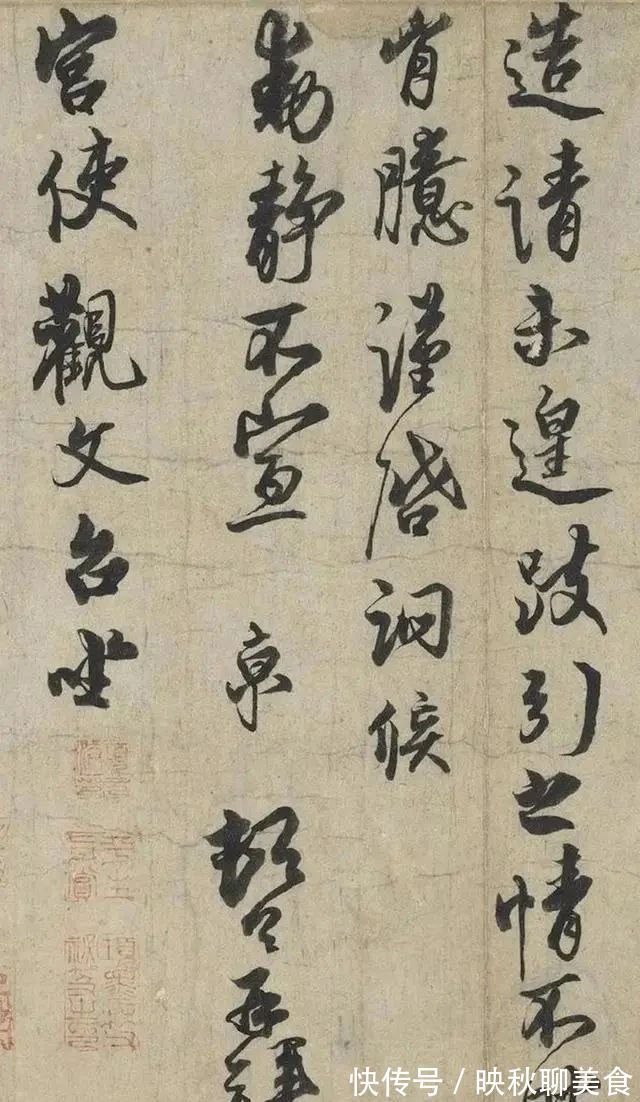 造請未遑跂引之情不
胷臆謹啓詗候
動靜不宣 京 頓首再拜
宮使觀文台坐
快传号 / 映秋聊美食